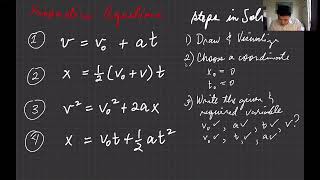 Kinematics Equations
① v = v₀ + at
② x = ½(v₀ + v)t
③ v² = v₀² + 2ax
④ x = v₀t + ½at²
Steps in
1) Draw & Visualize
2) Choose a coordinate
x₀ = 0
3) Write the given &
required variable
v₀ ✓, a ✓, t ✓, v?